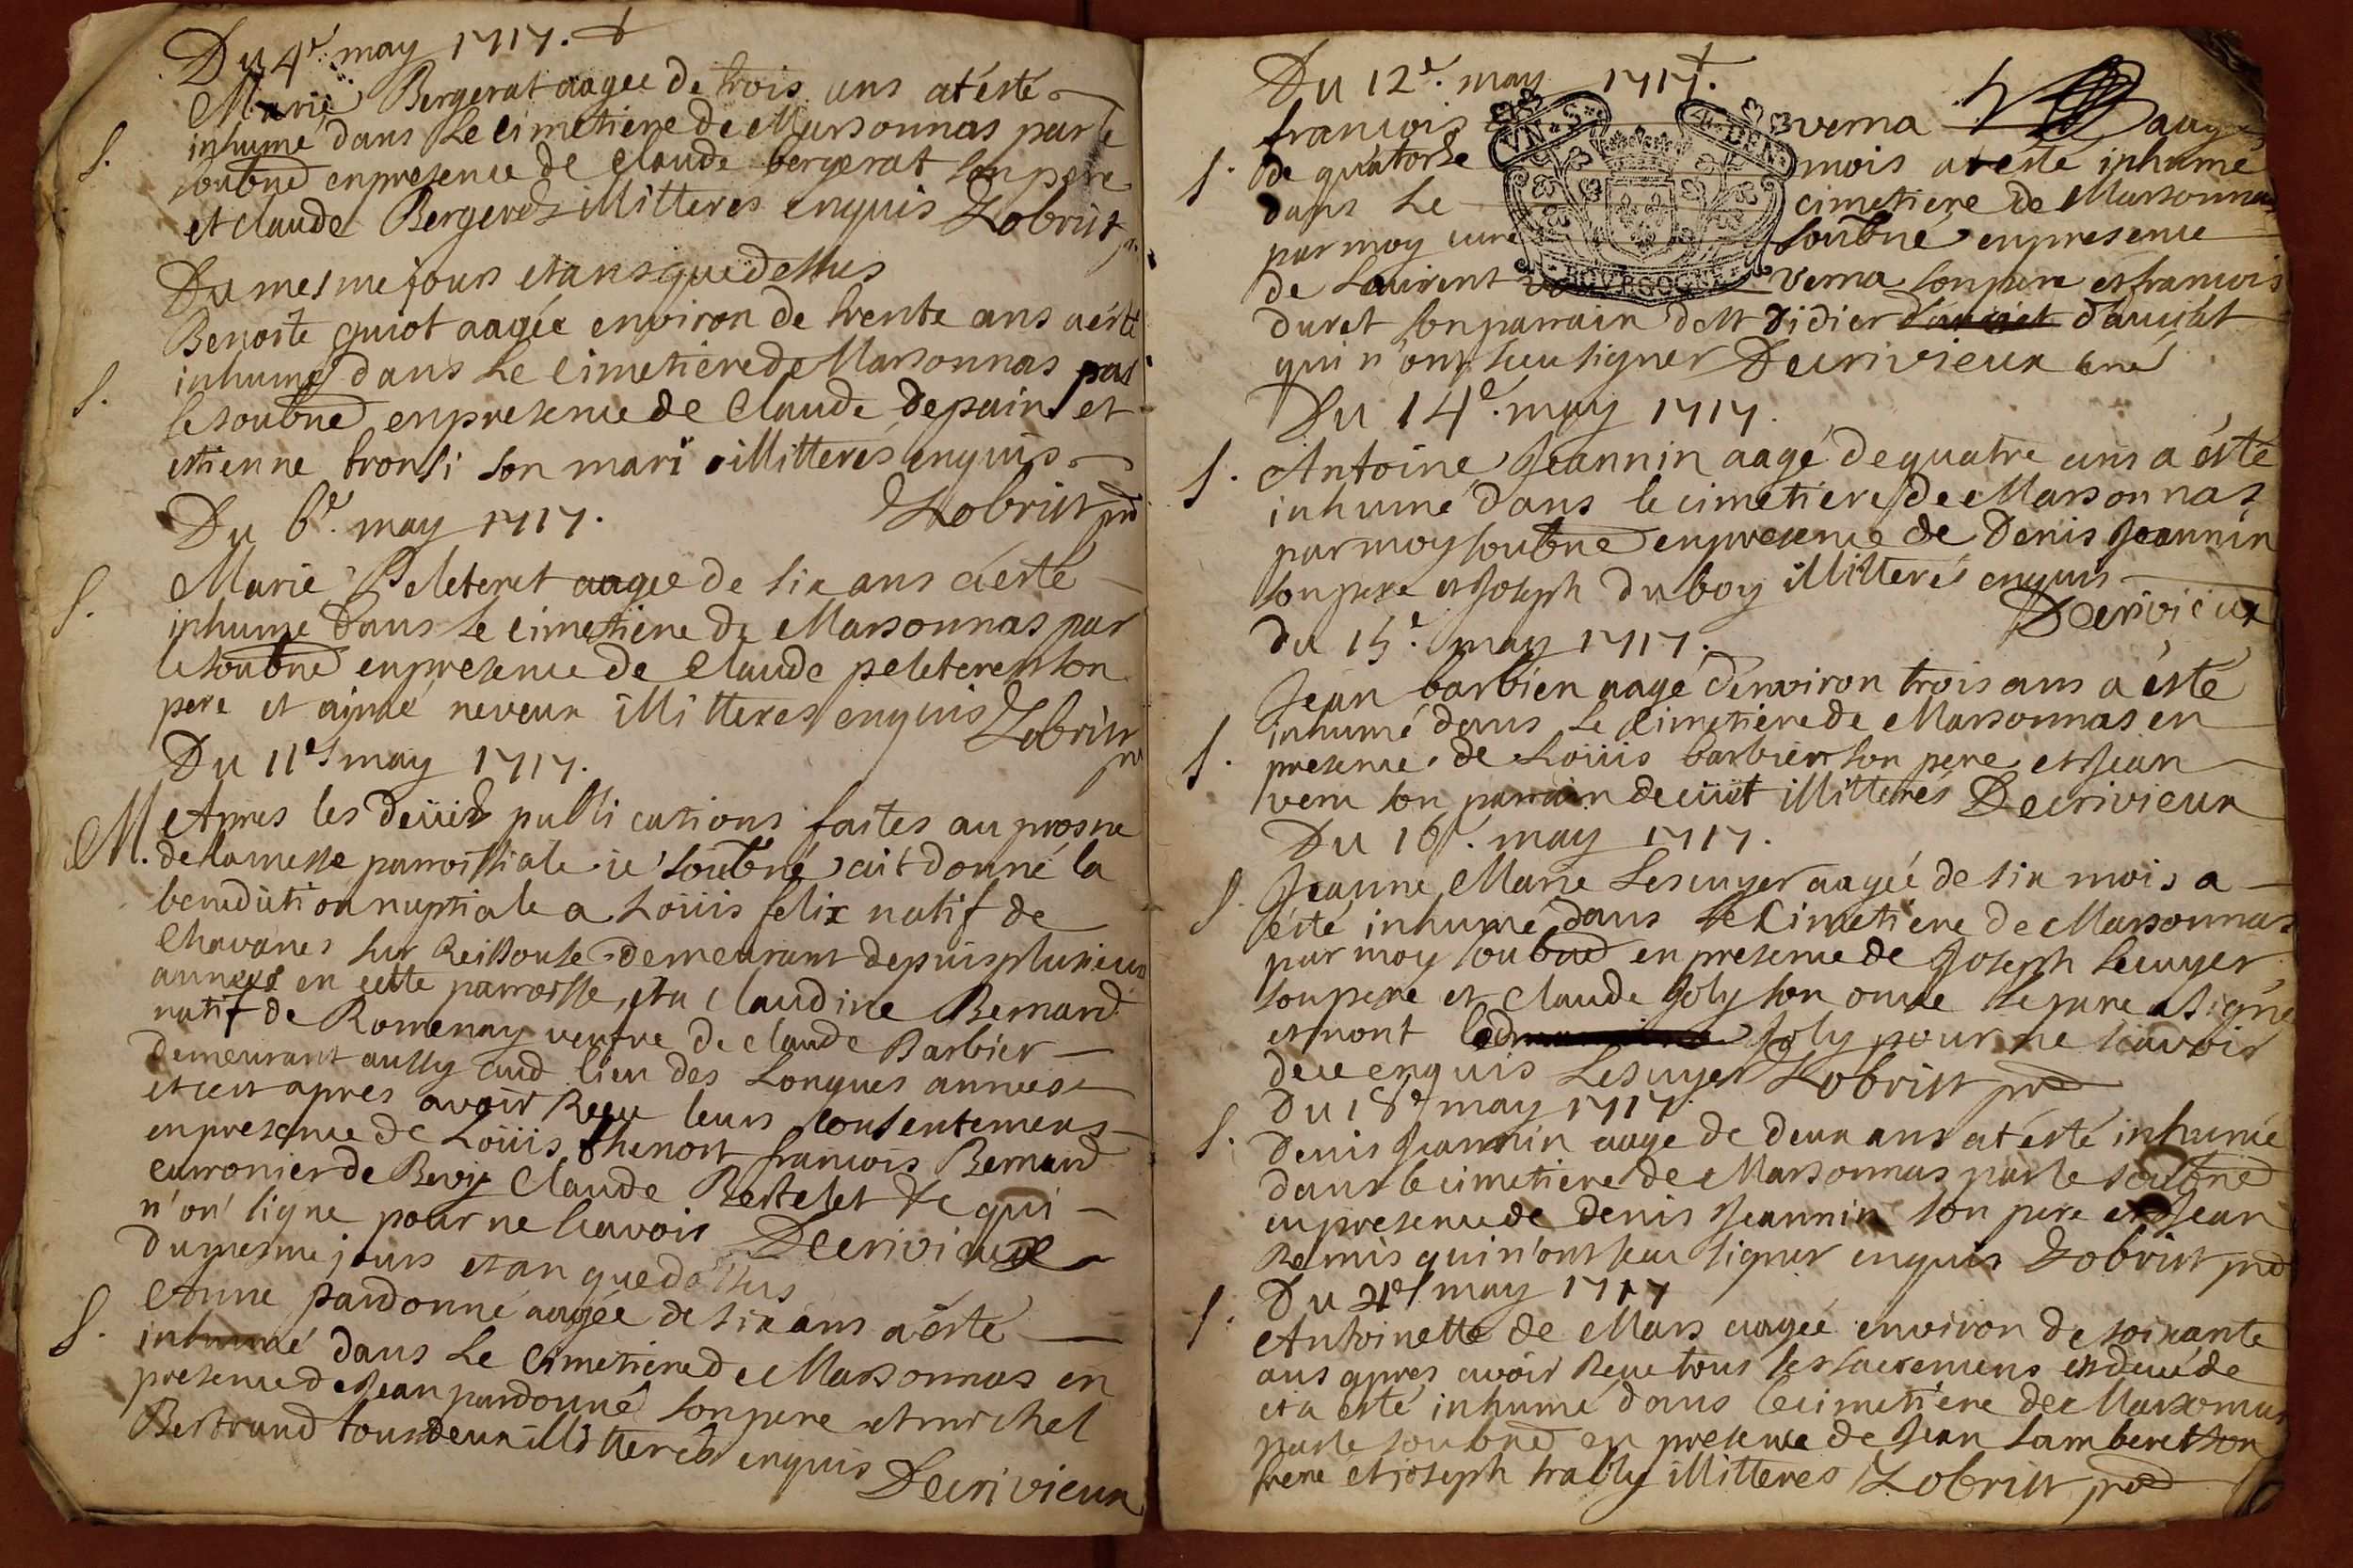 Du 4e. may 1717. +
Marie Bergerat aagée de trois ans at été
S. inhumé dans Le cimetiere de Marsonnas par le
soubné en presence de Claude bergerat son pere
et claude Bergeret illitteres enquis Lobrist pr
Du mesme jours et ans que dessus
Benoite guiot aagée environ de trente ans a été
inhumé dans Le Cimetiere de Marsonnas par
S. le soubné en presence de Claude depain et
etienne tronsi son mari illitterés enquis
Du 6e. may 1717. Lobrist prē
Marie Peleteret aagée de six ans a esté
S. inhumé dans Le Cimetiere de Marsonnas par
le soubné en presence de Claude peleteret son
pere et aimé neveux illitteres enquis Lobrist pr
Du 11e may 1717.
Apres les deüiës publications faites au prosne
M. de la messe parroissiale ie soubné ait donné la
benediction nuptiale a Loüis felix natif de
Chavanes sur Reissouse demeurant depuis plusieurs
annees en cette parroisse, et a Claudine Bernard
natif de Romenay veufve de claude Barbier
demeurant aussy aud lieu des Longues annees
et cest apres avoir Reçue leurs consentemens
en presence de Loüis thenon francois Bernard
Claude Bertelet &c qui
n'on signe pour ne scavoir Decrivieux
du mesme jours et an que dessus
Anne pardonné aagée de six ans a été
S. inhumé dans Le Cimetiere de Marsonnas en
presence de Jean pardonné son pere et michel
Bertrand tous deux illitterés enquis
Decrivieux
Du 12e. may 1717. +
francois verna aagé
S. de quatorse mois at été inhumé
dans Le cimetiere de Marsonnas
par moy curé soubné en presence
de Laurent verna son pere et francois
VN·S· 4·DEN·
BOVRGOGNE
duret son parrain dela Didier dauuset
qui n'ont sceu signer Decrivieux curé
Du 14e. may 1717.
S. Antoine Jeannin aagé de quatre ans a été
inhumé dans le cimetiere de Marsonnas
par moy soubné en presence de Denis Jeannin
son pere et Joseph duboy illitterés enquis
Decrivieux
du 15e. may 1717.
Jean barbier aagé denviron trois ans a été
inhumé dans Le Cimetiere de Marsonnas en
S. presence de Loüis barbier son pere et Jean
son parrain illitterés Decrivieux
Du 16e. may 1717.
Jeanne Marie Lescuyer aagée de six mois a
S. été inhumé dans Le Cimetiere de Marsonnas
par moy soubné en presence de Joseph Lecuyer
son pere et Claude Joly son oncle le pere a signé
et non led Joly pour ne scavoir
dece enquis Lescuyer Lobrist prē
Du 18e may 1717.
S. Denis Jeannin aage de deux ans at été inhumé
dans le cimetiere de Marsonnas par le soubné
en presence de Denis Jeannin son pere et Jean
Remis qui n'ont sceu signer enquis Lobrist prē
S. Du 21e may 1717
Antoinette de Mars aagée environ de soixante
ans apres avoir Reçue tous les sacremens est decédé
et a été inhumé dans le cimetiere de Marsonnas
par le soubné en presence de Jean Lamberet son
frere et joseph trably illitteres Lobrist prē